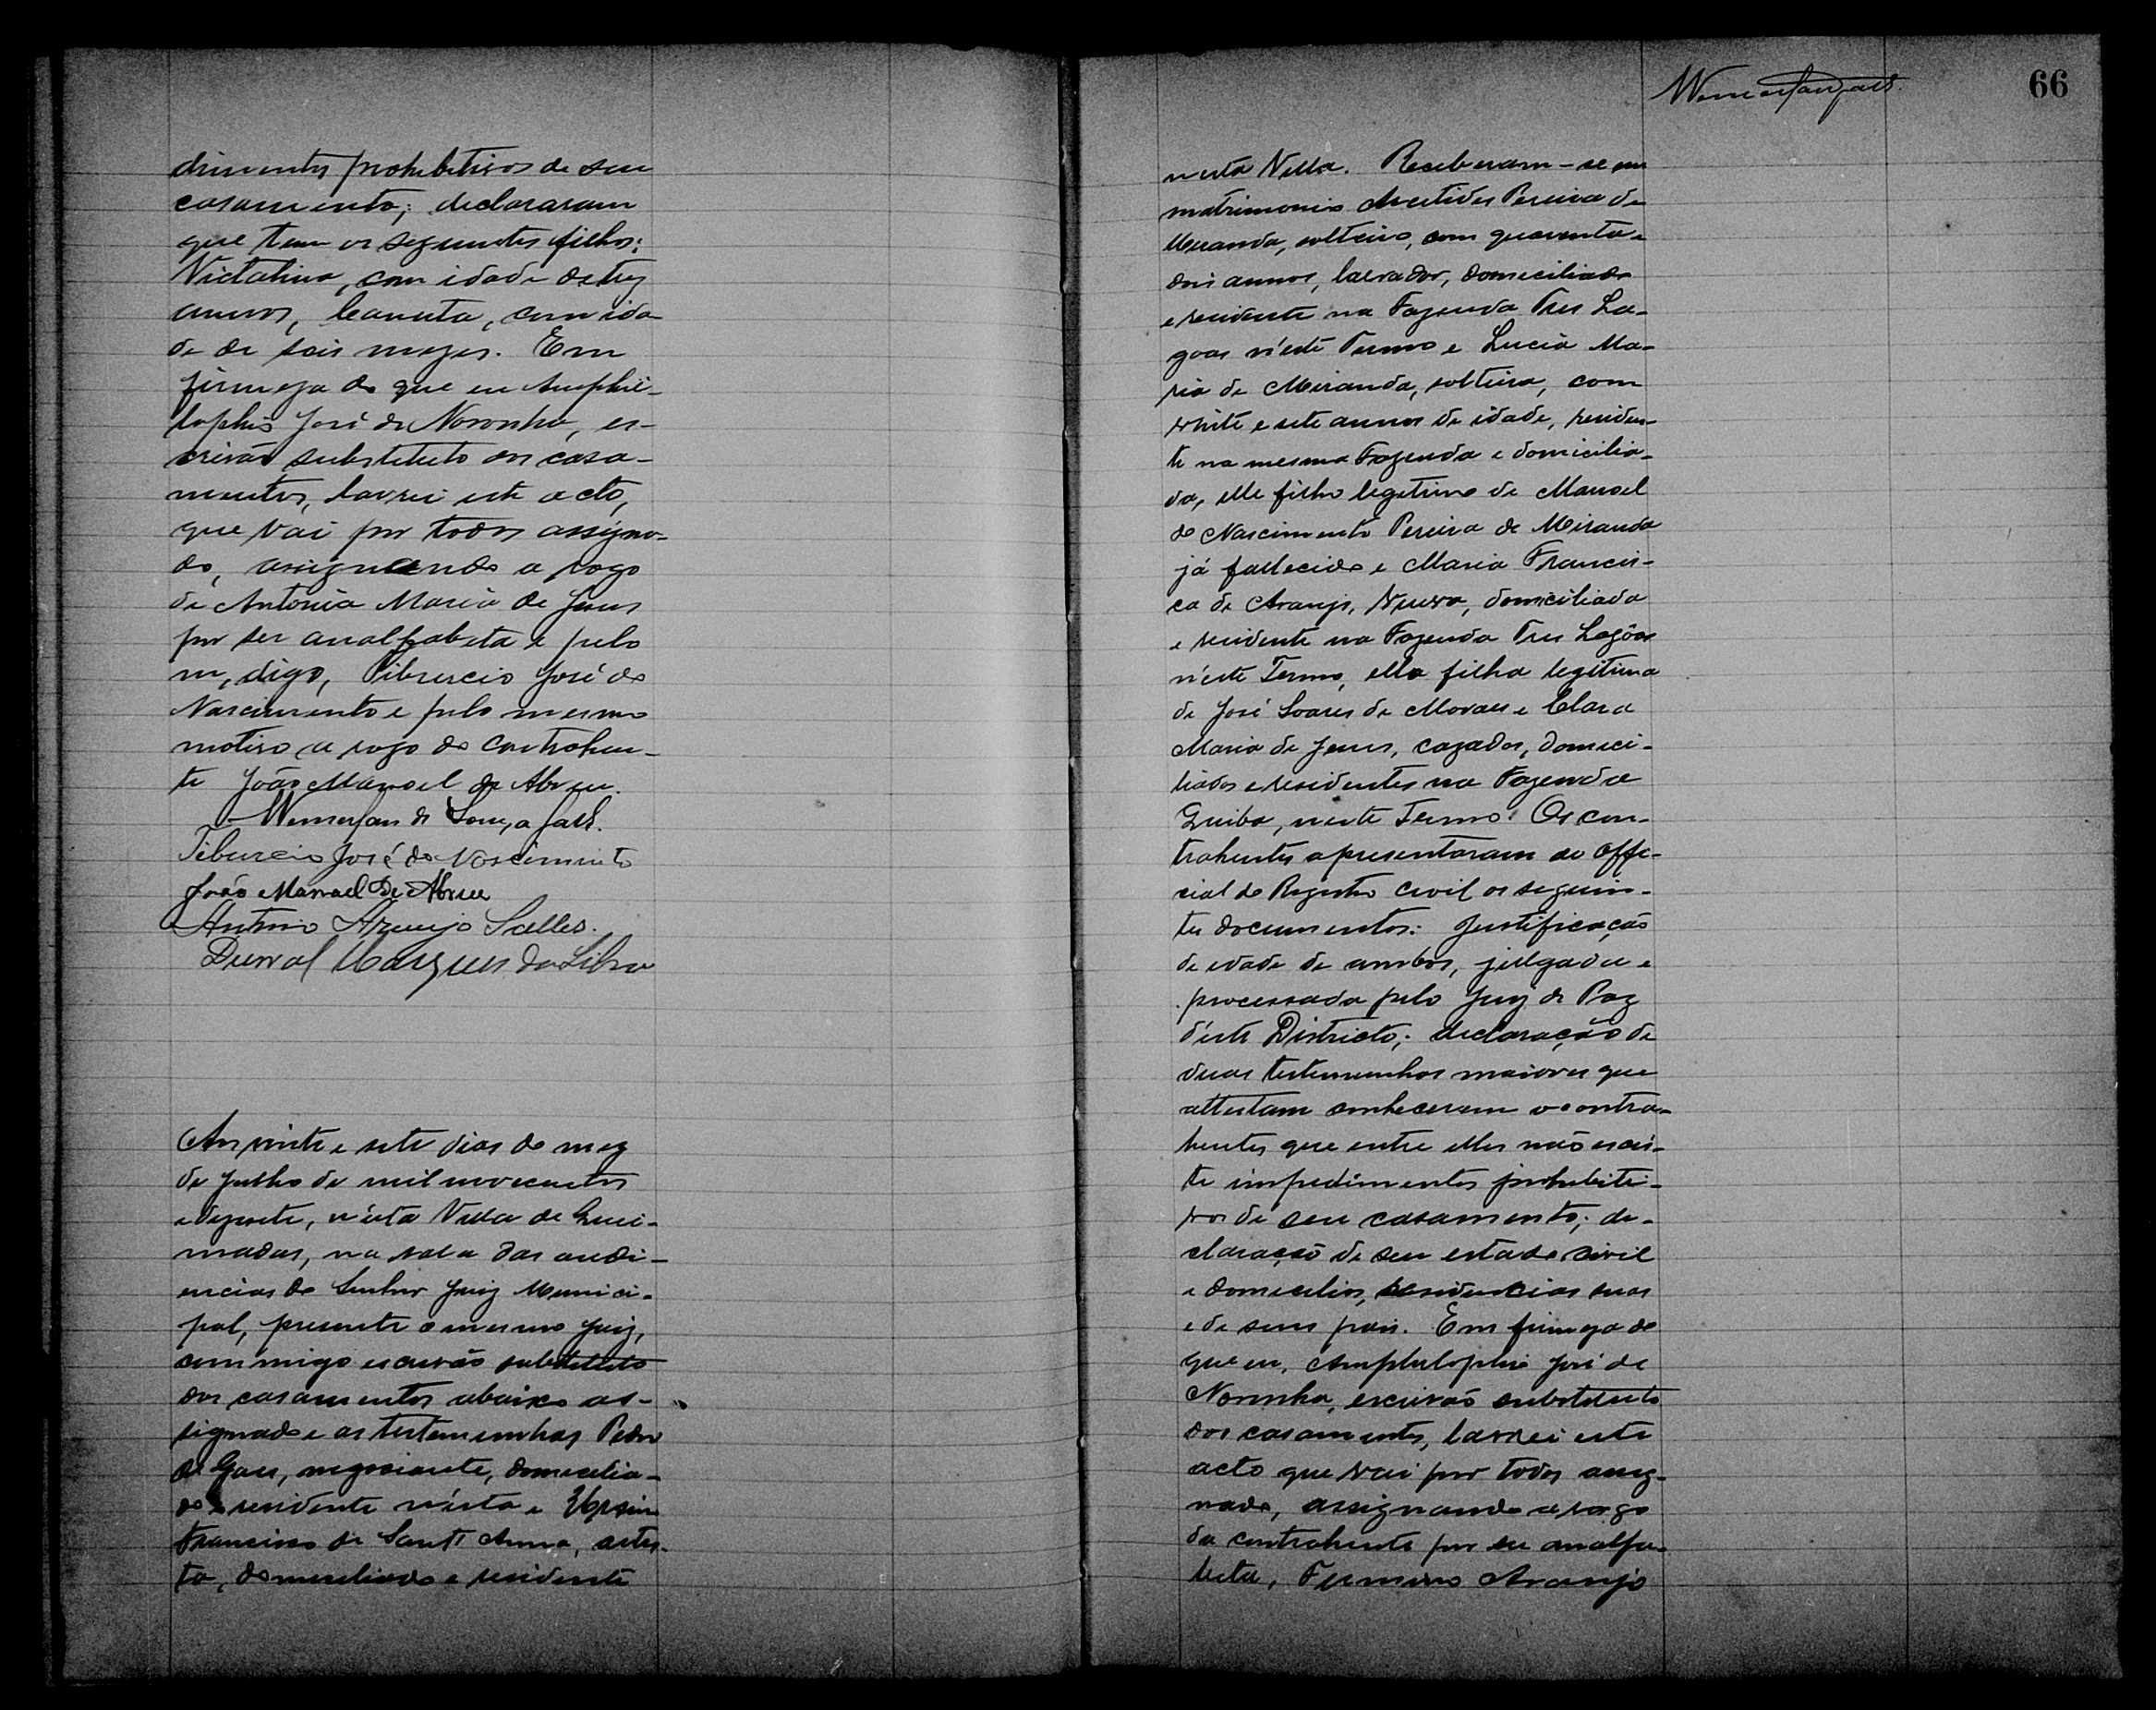 dimentos prohibitivos de seu
casamento; declararam
que tem os seguintes filhos:
Victalina, com idade de tres
annos, Canuta, com ida-
de de seis mezes. Em
firmeza do que eu Amphi-
lophio José de Noronha, es-
crivão substituto dos casa-
mentos, lavrei este acto,
que vai por todos assigna-
do, assignando a rogo
de Antonia Maria de Jesus
por ser analfabeta e pelo
m, digo, Tiburcio José do
Nascimento e pelo mesmo
motivo a rogo do contrahen-
te João Manoel de Abreu.
de Souza
Tiburcio José do Nascimento
João Manoel De Abreu
Antonio Araujo Salles.
Durval Marques da Silva
Aos vinte e sete dias do mez
de Julho de mil novecentos
e dezesete, n'esta Villa de Quei-
madas, na sala das audi-
encias do Senhor Juiz Munici-
pal, presente o mesmo Juiz,
commigo escrivão substituto
dos casamentos abaixo as-
signado e as testemunhas Pedro
de Goes, negociante, domicilia-
do e residente n'esta e
Francisco de Sant'Anna, artis-
ta, domiciliado e residente
66
nesta Villa. Receberam-se em
matrimonio Aristides Pereira de
Miranda, solteiro, com quarenta e
dois annos, lavrador, domiciliado
e residente na Fazenda Tres La-
goas n'este Termo e Lucia Ma-
ria de Miranda, solteira, com
vinte e sete annos de idade, residen-
te na mesma Fazenda e domicilia-
da, elle filho legitimo de Manoel
do Nascimento Pereira de Miranda
já fallecido e Maria Francis-
ca de Araujo, viuva, domiciliada
e residente na Fazenda Tres Lagôas
n'este Termo, ella filha legitima
de José Soares de Moraes e Clara
Maria de Jesus, cazados, domici-
liados e residentes na Fazenda
neste Termo. Os con-
trahentes apresentaram ao offi-
cial do Registro civil os seguin-
tes documentos: Justificação
de idade de ambos, julgada e
processada pelo Juiz de Paz
d'este Districto; declaração de
duas testemunhas maiores que
attestam conhecerem os contra-
hentes que entre elles não exis-
te impedimentos prohibiti-
vos de seu casamento; de-
claração de seu estado civil
e domicilios, residencias suas
e de seus pais. Em firmeza do
que eu, Amphilophio José de
Noronha, escrivão substituto
dos casamentos, lavrei este
acto que vai por todos assig-
nado, assignando a rogo
da contrahente por ser analfa-
beta, Firmino Araujo